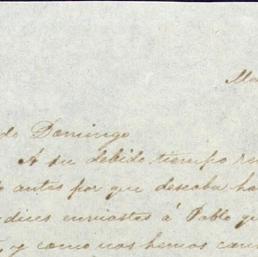 do Domingo
A su debido tiempo
antes por que deseaba
dices enviastes á Pablo
y como nos hemos